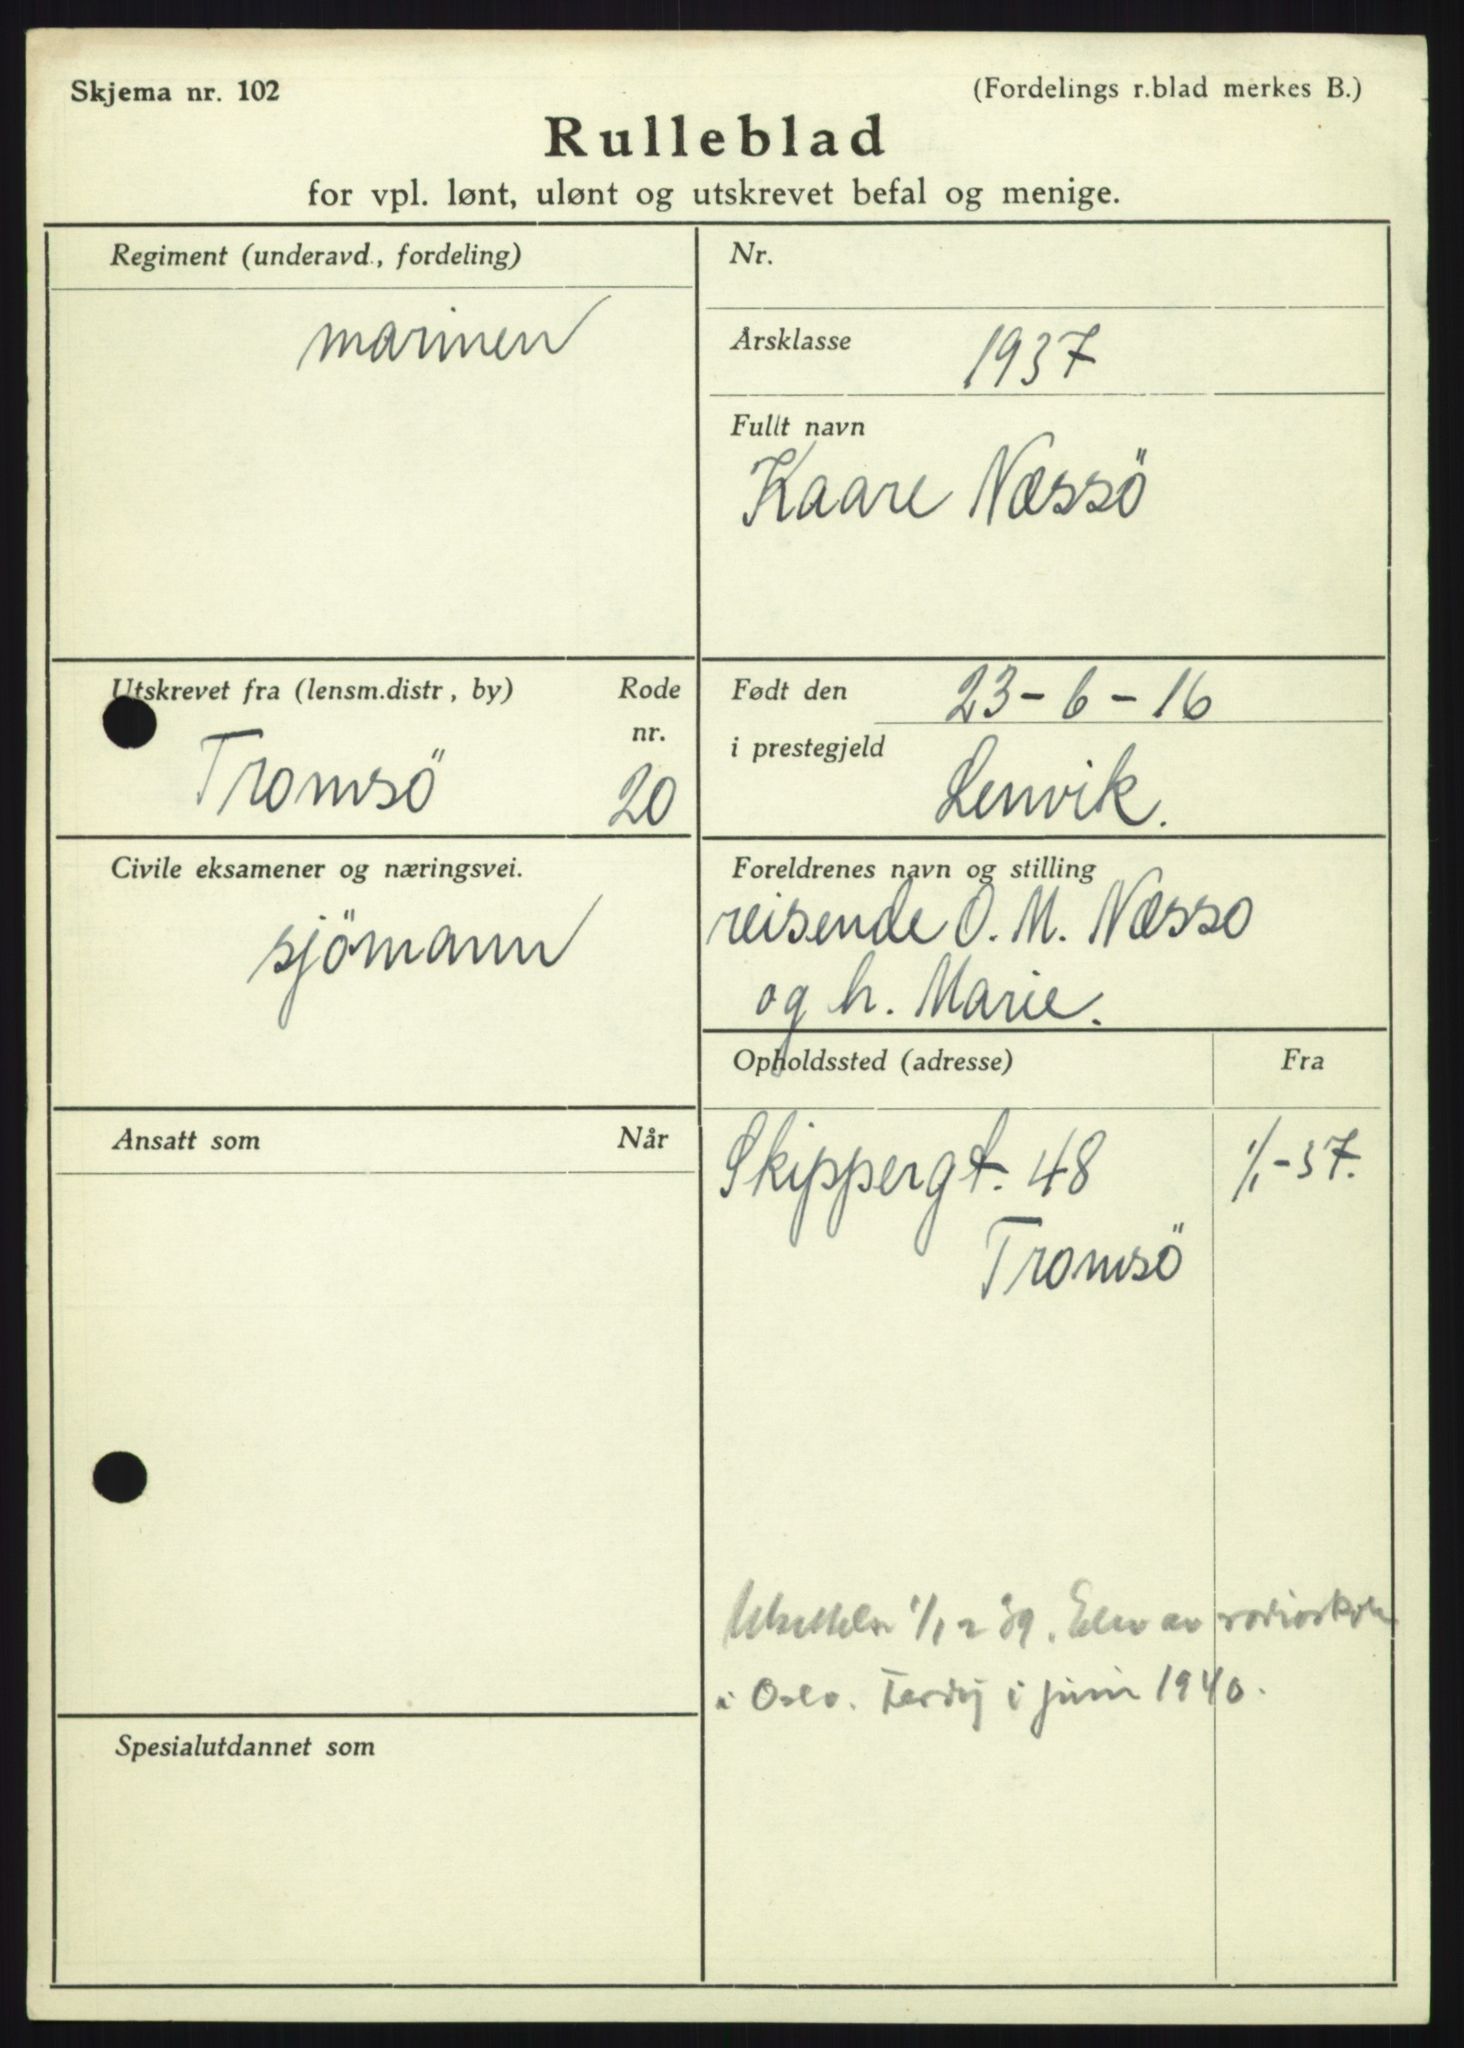 Skjema nr. 102
(Fordelings r.blad merkes B.)
Rulleblad
for vpl. lønt, ulønt og utskrevet befal og menige.
Regiment (underavd., fordeling)
marinen
Nr.
Årsklasse
1937
Fullt navn
Kaare Næssö
Utskrevet fra (lensm.distr, by)
Rode
nr.
Tromsö
20
Født den
23-6-16
i prestegjeld
Lenvik.
Civile eksamener og næringsvei.
sjömann
Foreldrenes navn og stilling
reisende O. M. Næsso
og h. Marie.
Opholdssted (adresse)
Fra
Skippergt. 48
1/1-37.
Tromsö
Ansatt som
Når
Utsettelse 39. Elev av radioskole
i Oslo. Ferdig i juni 1940.
Spesialutdannet som